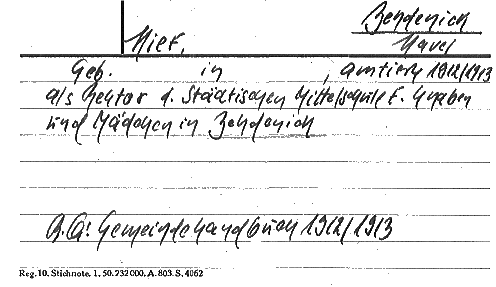 Zehdenick
Havel
Geb. in , amtiert 1912/1913
als Rektor d. Städtischen Mittelschule f. Knaben
und Mädchen in Zehdenick
Q.A: Gemeindehandbuch 1912/1913
Reg. 10. Stichnote. 1. 50. 232000. A. 803. S. 4062